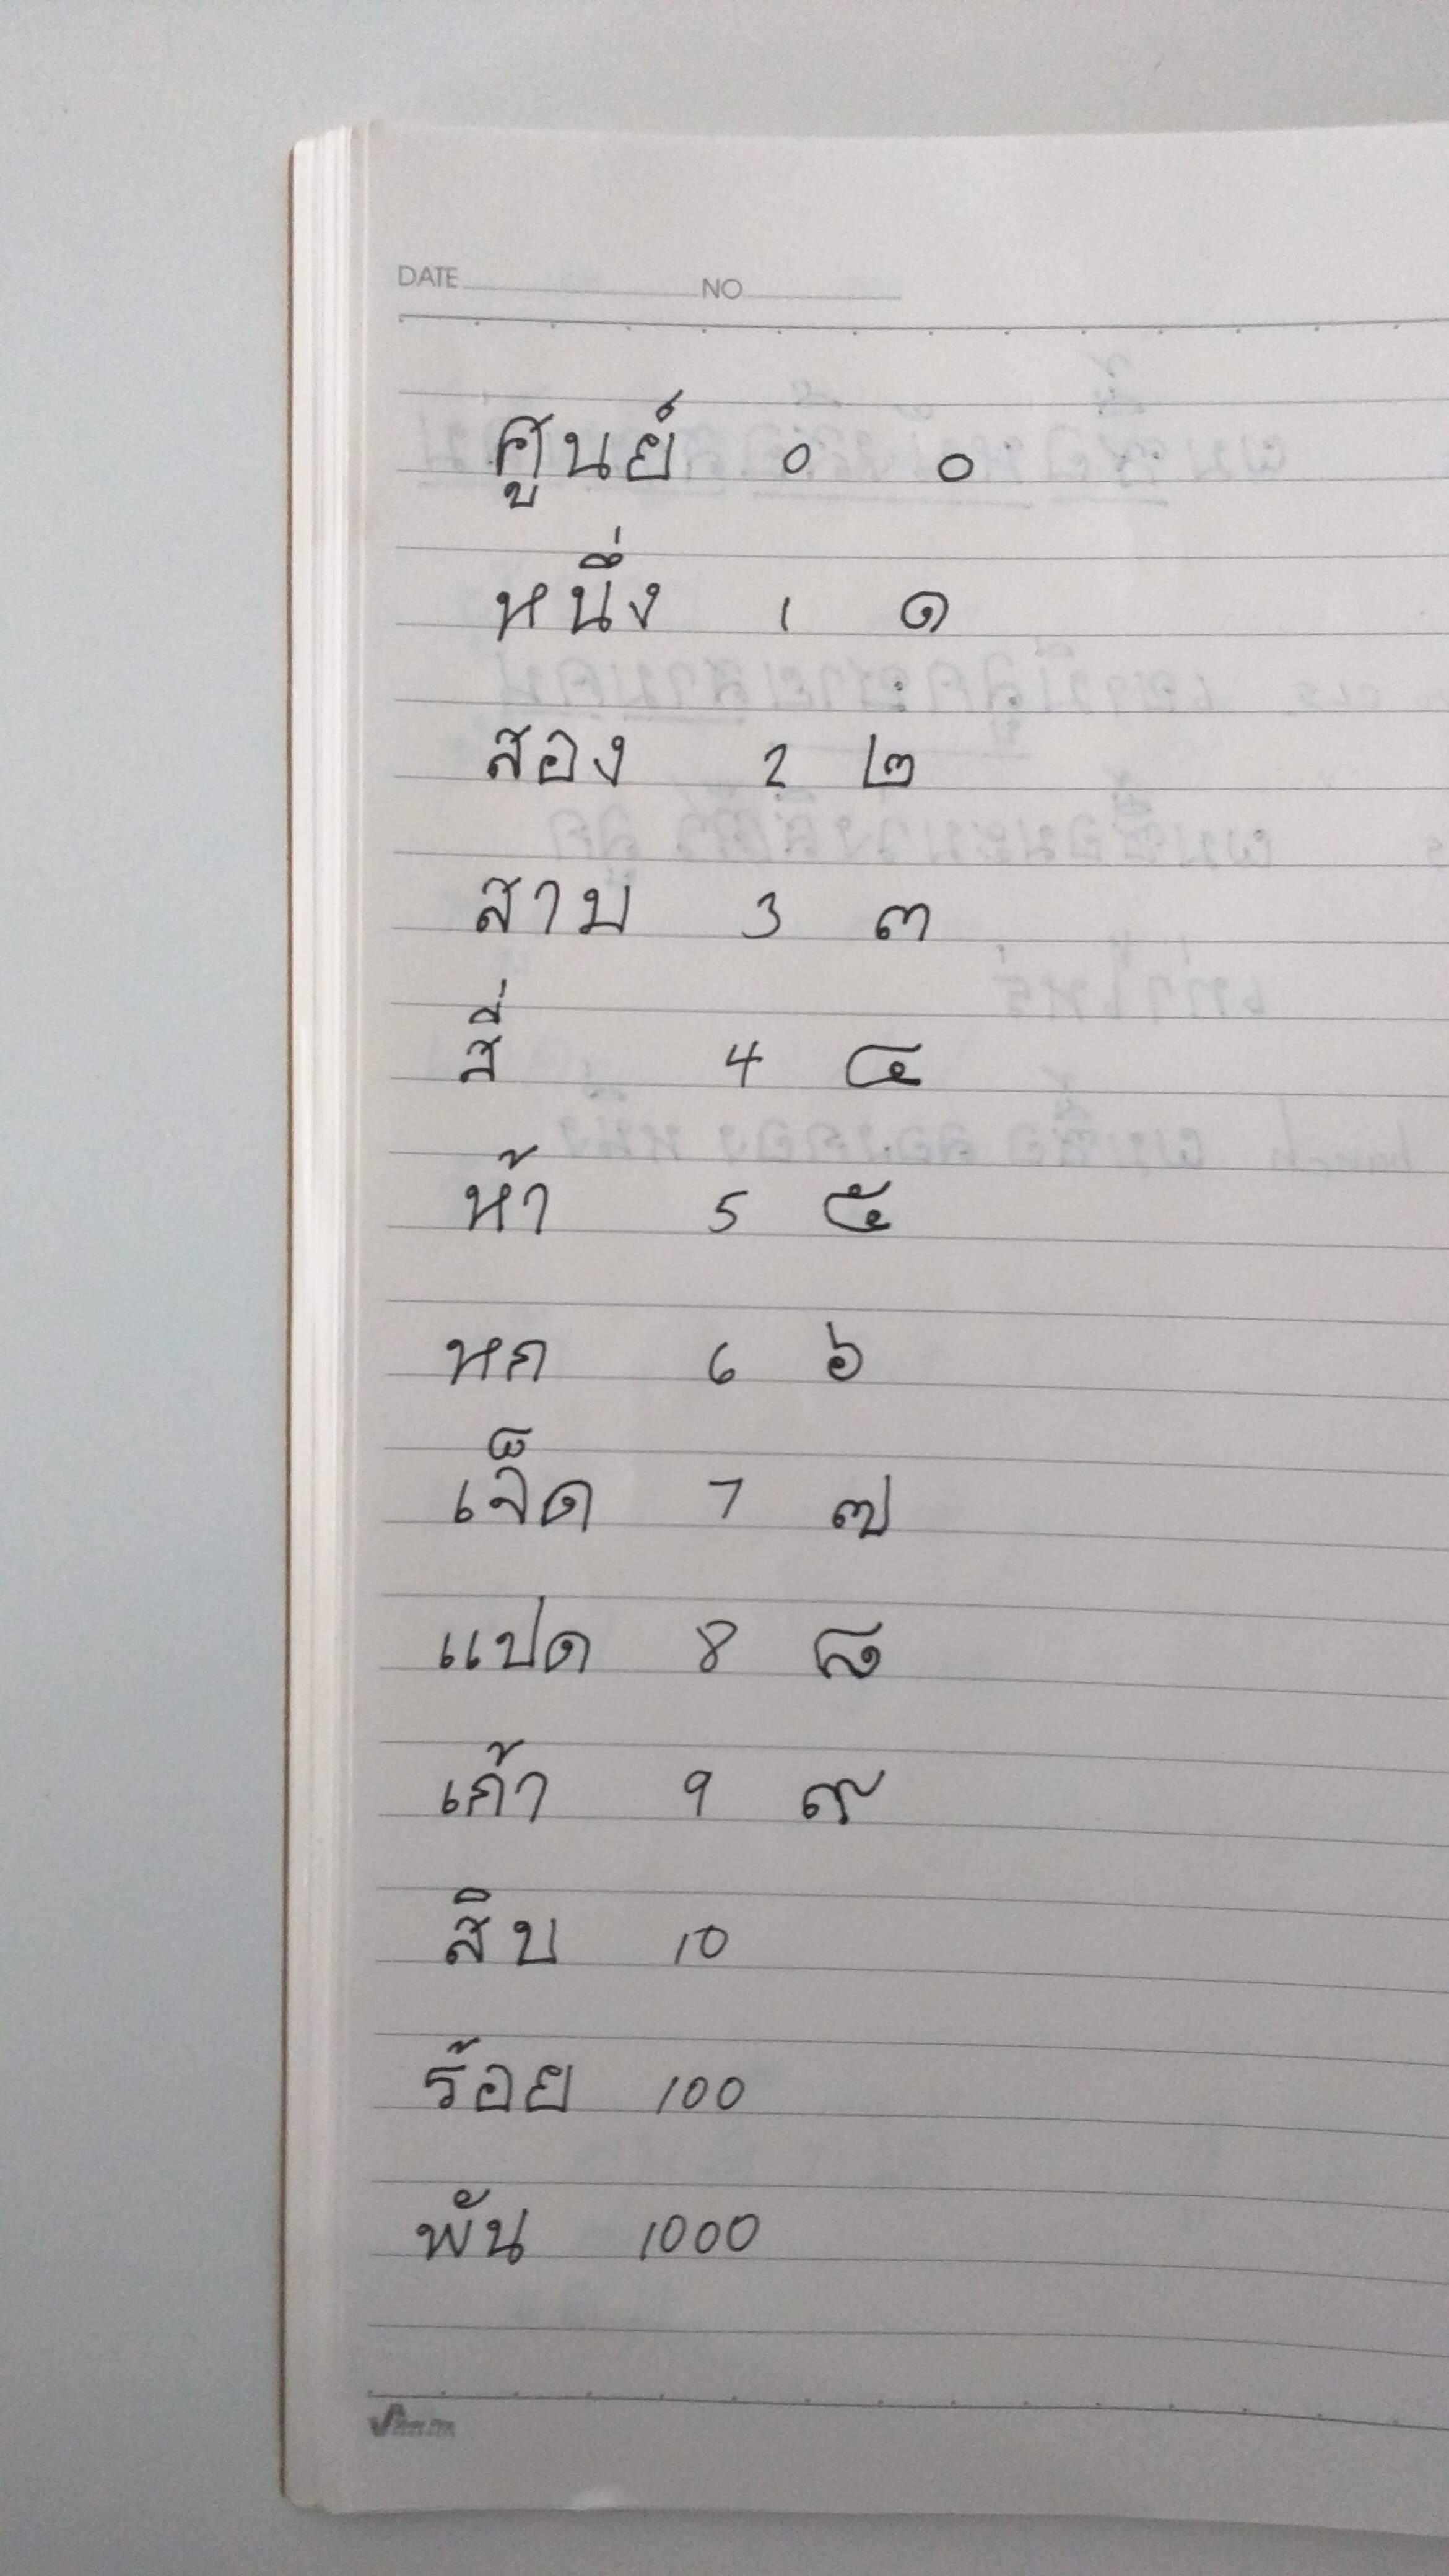 DATE NO
ศูนย์ 0 ๐
หนึ่ง 1 ๑
สอง 2 ๒
สาม 3 ๓
สี่ 4 ๔
ห้า 5 ๕
หก 6 ๖
เจ็ด 7 ๗
แปด 8 ๘
เก้า 9 ๙
สิบ 10
ร้อย 100
พัน 1000